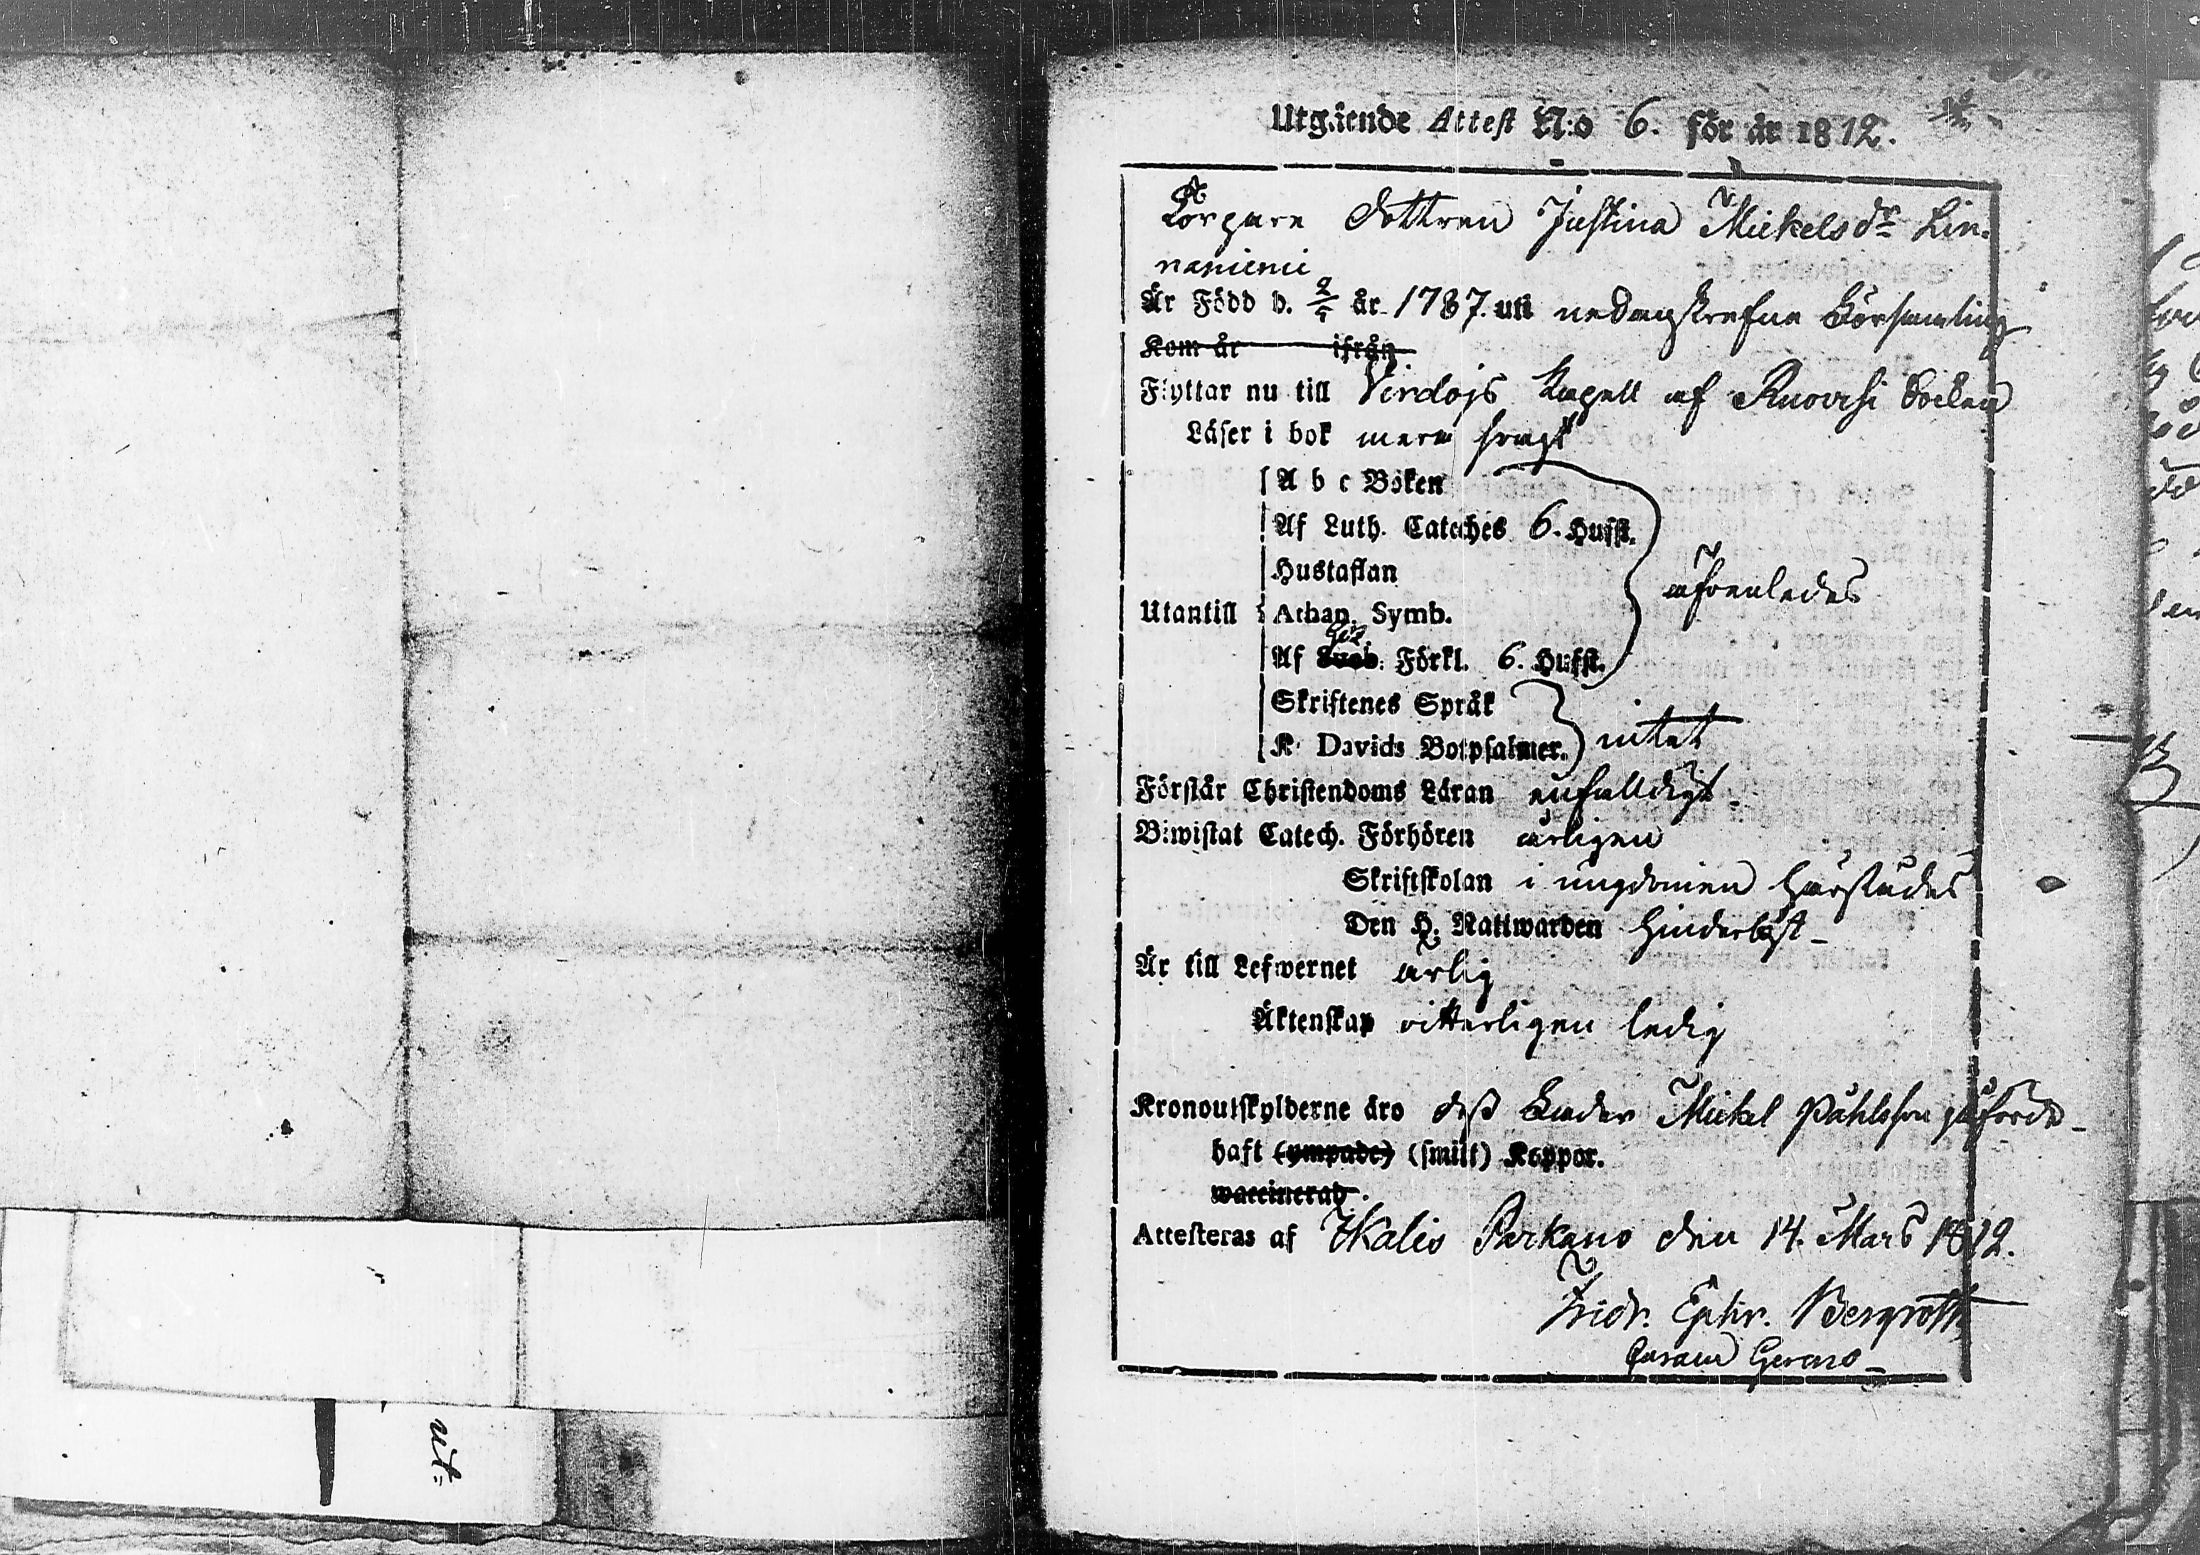 Utgående Attest N:o 6. för år 1812.
Torpare dottren Justina Mickelsdr Lin-
naniemi
Är Född d. 2/5 år 1787. uti nedanskrefne Församling
Kom år ifrån
Flyttar nu till Virdojs Kapell af Ruovesi Socken
Läser i bok merm svagt
Utantill
A b c Boken
Af Luth. Cateches 6. Hufst.
Hustaflan
Athan. Symb.
Af Sweb. Förkl. 6. Hufst.
åfvenledes
Skriftenes Språk
K. Davids Botpsalmer.
intet
Förstår Christendoms Läran enfalldigt
Biwistat Catech. Förhören årligen
Skriftskolan i ungdomen härstädes
Den H. Nattwarden hinderlöst
Är till Lefwernet ärlig
Äktenskap vitterligen ledig
Kronoutskylderne äro dess Fader Mickel Påhlsson påförde
haft (ympade) (smitt) Koppor.
waccinerad.
Attesteras af Ikalis Parkano den 14. Mars 1812.
Fridr. Ephr. Bergroth
ut: